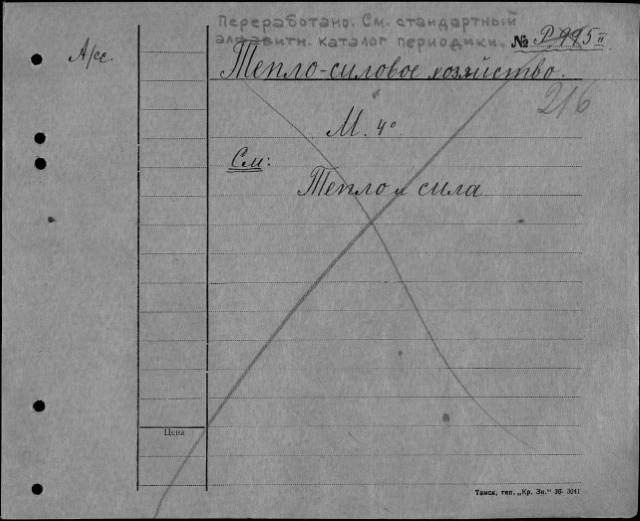 Переработано. См. стандартный
алфавитн. каталог периодики.
№ Р 995 II
А/сс.
Тепло-силовое хозяйство.
216
М. 4°
См:
Тепло и сила
Цена
Томск, тел. „Кр. Зн.“ 36-3041